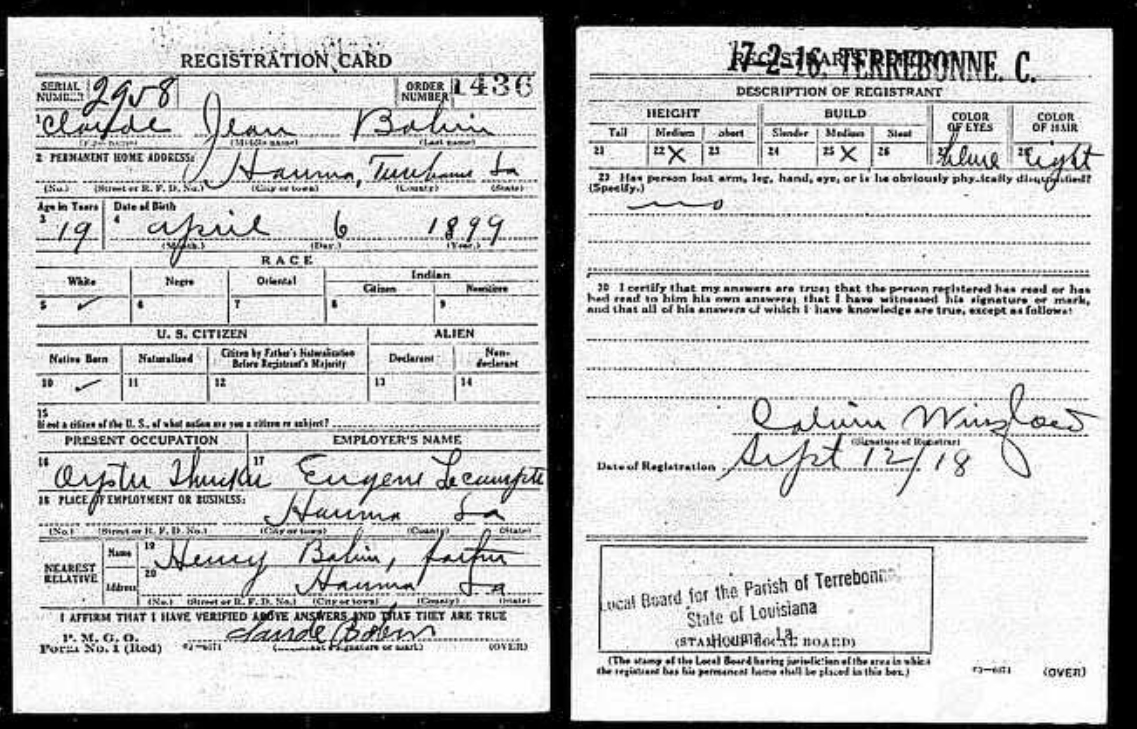 REGISTRATION CARD
SERIAL NUMBER 2958 ORDER NUMBER 1436
1 Claude Jean Bolin
(First name) (Middle name) (Last name)
2 PERMANENT HOME ADDRESS:
Houma, Terrebonne La
(No.) (Street or R. F. D. No.) (City or town) (County) (State)
Age in Years Date of Birth
3 19 4 April 6 1899
(Month.) (Day.) (Year.)
RACE
White Negro Oriental Indian
Citizen Noncitizen
5 ✓ 6 7 8 9
U. S. CITIZEN ALIEN
Native Born Naturalized Citizen by Father's Naturalization Before Registrant's Majority Declarant Non-declarant
10 ✓ 11 12 13 14
15
If not a citizen of the U. S., of what nation are you a citizen or subject?
PRESENT OCCUPATION EMPLOYER'S NAME
16 Oyster Shucker 17 Eugene Lecompte
18 PLACE OF EMPLOYMENT OR BUSINESS:
Houma La
(No.) (Street or R. F. D. No.) (City or town) (County) (State)
NEAREST RELATIVE Name 19 Henry Bolin, father
Address 20 Houma La
(No.) (Street or R. F. D. No.) (City or town) (County) (State)
I AFFIRM THAT I HAVE VERIFIED ABOVE ANSWERS AND THAT THEY ARE TRUE
P. M. G. O.
Form No. 1 (Red) Claude Bolin
(Registrant's signature or mark) (OVER)
REGISTRAR'S REPORT
17-2-16. TERREBONNE. C.
DESCRIPTION OF REGISTRANT
HEIGHT BUILD COLOR OF EYES COLOR OF HAIR
Tall Medium Short Slender Medium Stout
21 22 X 23 24 25 X 26 27 blue 28 light
29 Has person lost arm, leg, hand, eye, or is he obviously physically disqualified?
(Specify.)
no
30 I certify that my answers are true; that the person registered has read or has
had read to him his own answers; that I have witnessed his signature or mark,
and that all of his answers of which I have knowledge are true, except as follows:
Calvin Winslow
(Signature of Registrar)
Date of Registration Sept 12/18
Local Board for the Parish of Terrebonne,
State of Louisiana
Houma, La.
(STAMP OF LOCAL BOARD)
(The stamp of the Local Board having jurisdiction of the area in which
the registrant has his permanent home shall be placed in this box.)
(OVER)